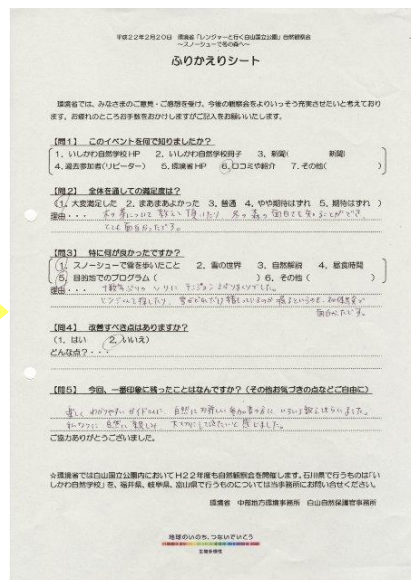 平成22年2月20日 環境省「レンジャーと行く白山国立公園」自然観察会
～スノーシューで冬の森へ～
ふりかえりシート
環境省では、みなさまのご意見・ご感想を受け、今後の観察会をよりいっそう充実させたいと考えており
ます。お疲れのところお手数をおかけしますがご記入をお願いいたします。
【問1】 このイベントを何で知りましたか？
1．いしかわ自然学校HP 2．いしかわ自然学校冊子 3．新聞( 新聞)
4．過去参加者(リピーター) 5．環境省HP 6．口コミや紹介 7．その他( )
【問2】 全体を通しての満足度は？
(1．大変満足した 2．まあまあよかった 3．普通 4．やや期待はずれ 5．期待はずれ )
理由・・・ 木の芽について教えて頂いたり 冬の森の面白さを知ることができ、
とても面白かったです。
【問3】 特に何が良かったですか？
1．スノーシューで雪を歩いたこと 2．雪の世界 3．自然解説 4．昼食時間
5．目的地でのプログラム( ) 6．その他( )
理由・・・
面白かったです。
【問4】 改善すべき点はありますか？
(1．はい 2．いいえ)
どんな点？・・・
【問5】 今回、一番印象に残ったことはなんですか？（その他お気づきの点などご自由に）
楽しく わかりやすい ガイド
自然に親しみ 大切にして行きたいと感じました。
ご協力ありがとうございました。
☆環境省では白山国立公園内においてH22年度も自然観察会を開催します。石川県で行うものは「い
しかわ自然学校」を、福井県、岐阜県、富山県で行うものについては当事務所にお問い合せください。
環境省 中部地方環境事務所 白山自然保護官事務所
地球のいのち、つないでいこう
生物多様性